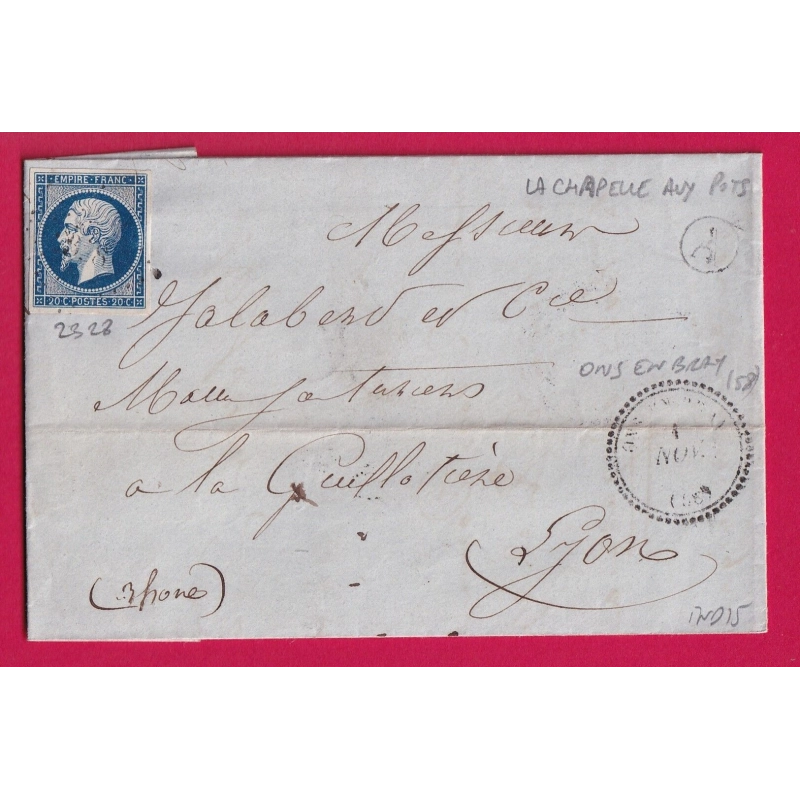 EMPIRE · FRANC ·
20·C·POSTES·20·C·
2328
LA CHAPELLE AUX POTS
A
Messieurs
Jalaberd et Cie
Manufacturiers
ONS EN BRAY (58)
1
NOV
(58)
a la Guillotière
Lyon
(Rhone)
IND 15